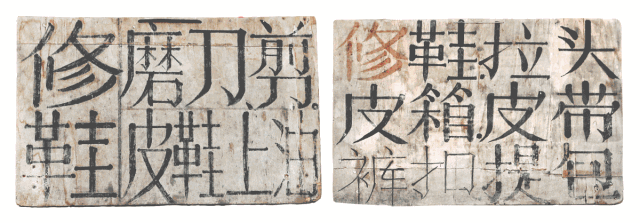 修磨刀.剪.
鞋皮鞋上油.
修鞋.拉头
皮箱.皮带
裤扣提包